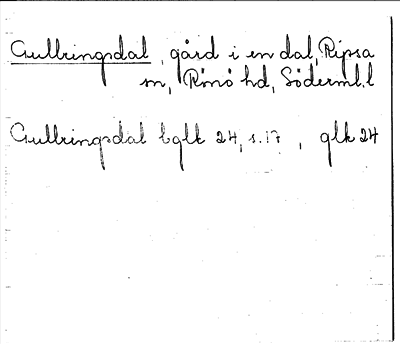 Gullringsdal, gård i en dal, Ripsa
sn, Rönö hd, Söderml. l
Gullringsdal bglk 24, s. 17, glk 24